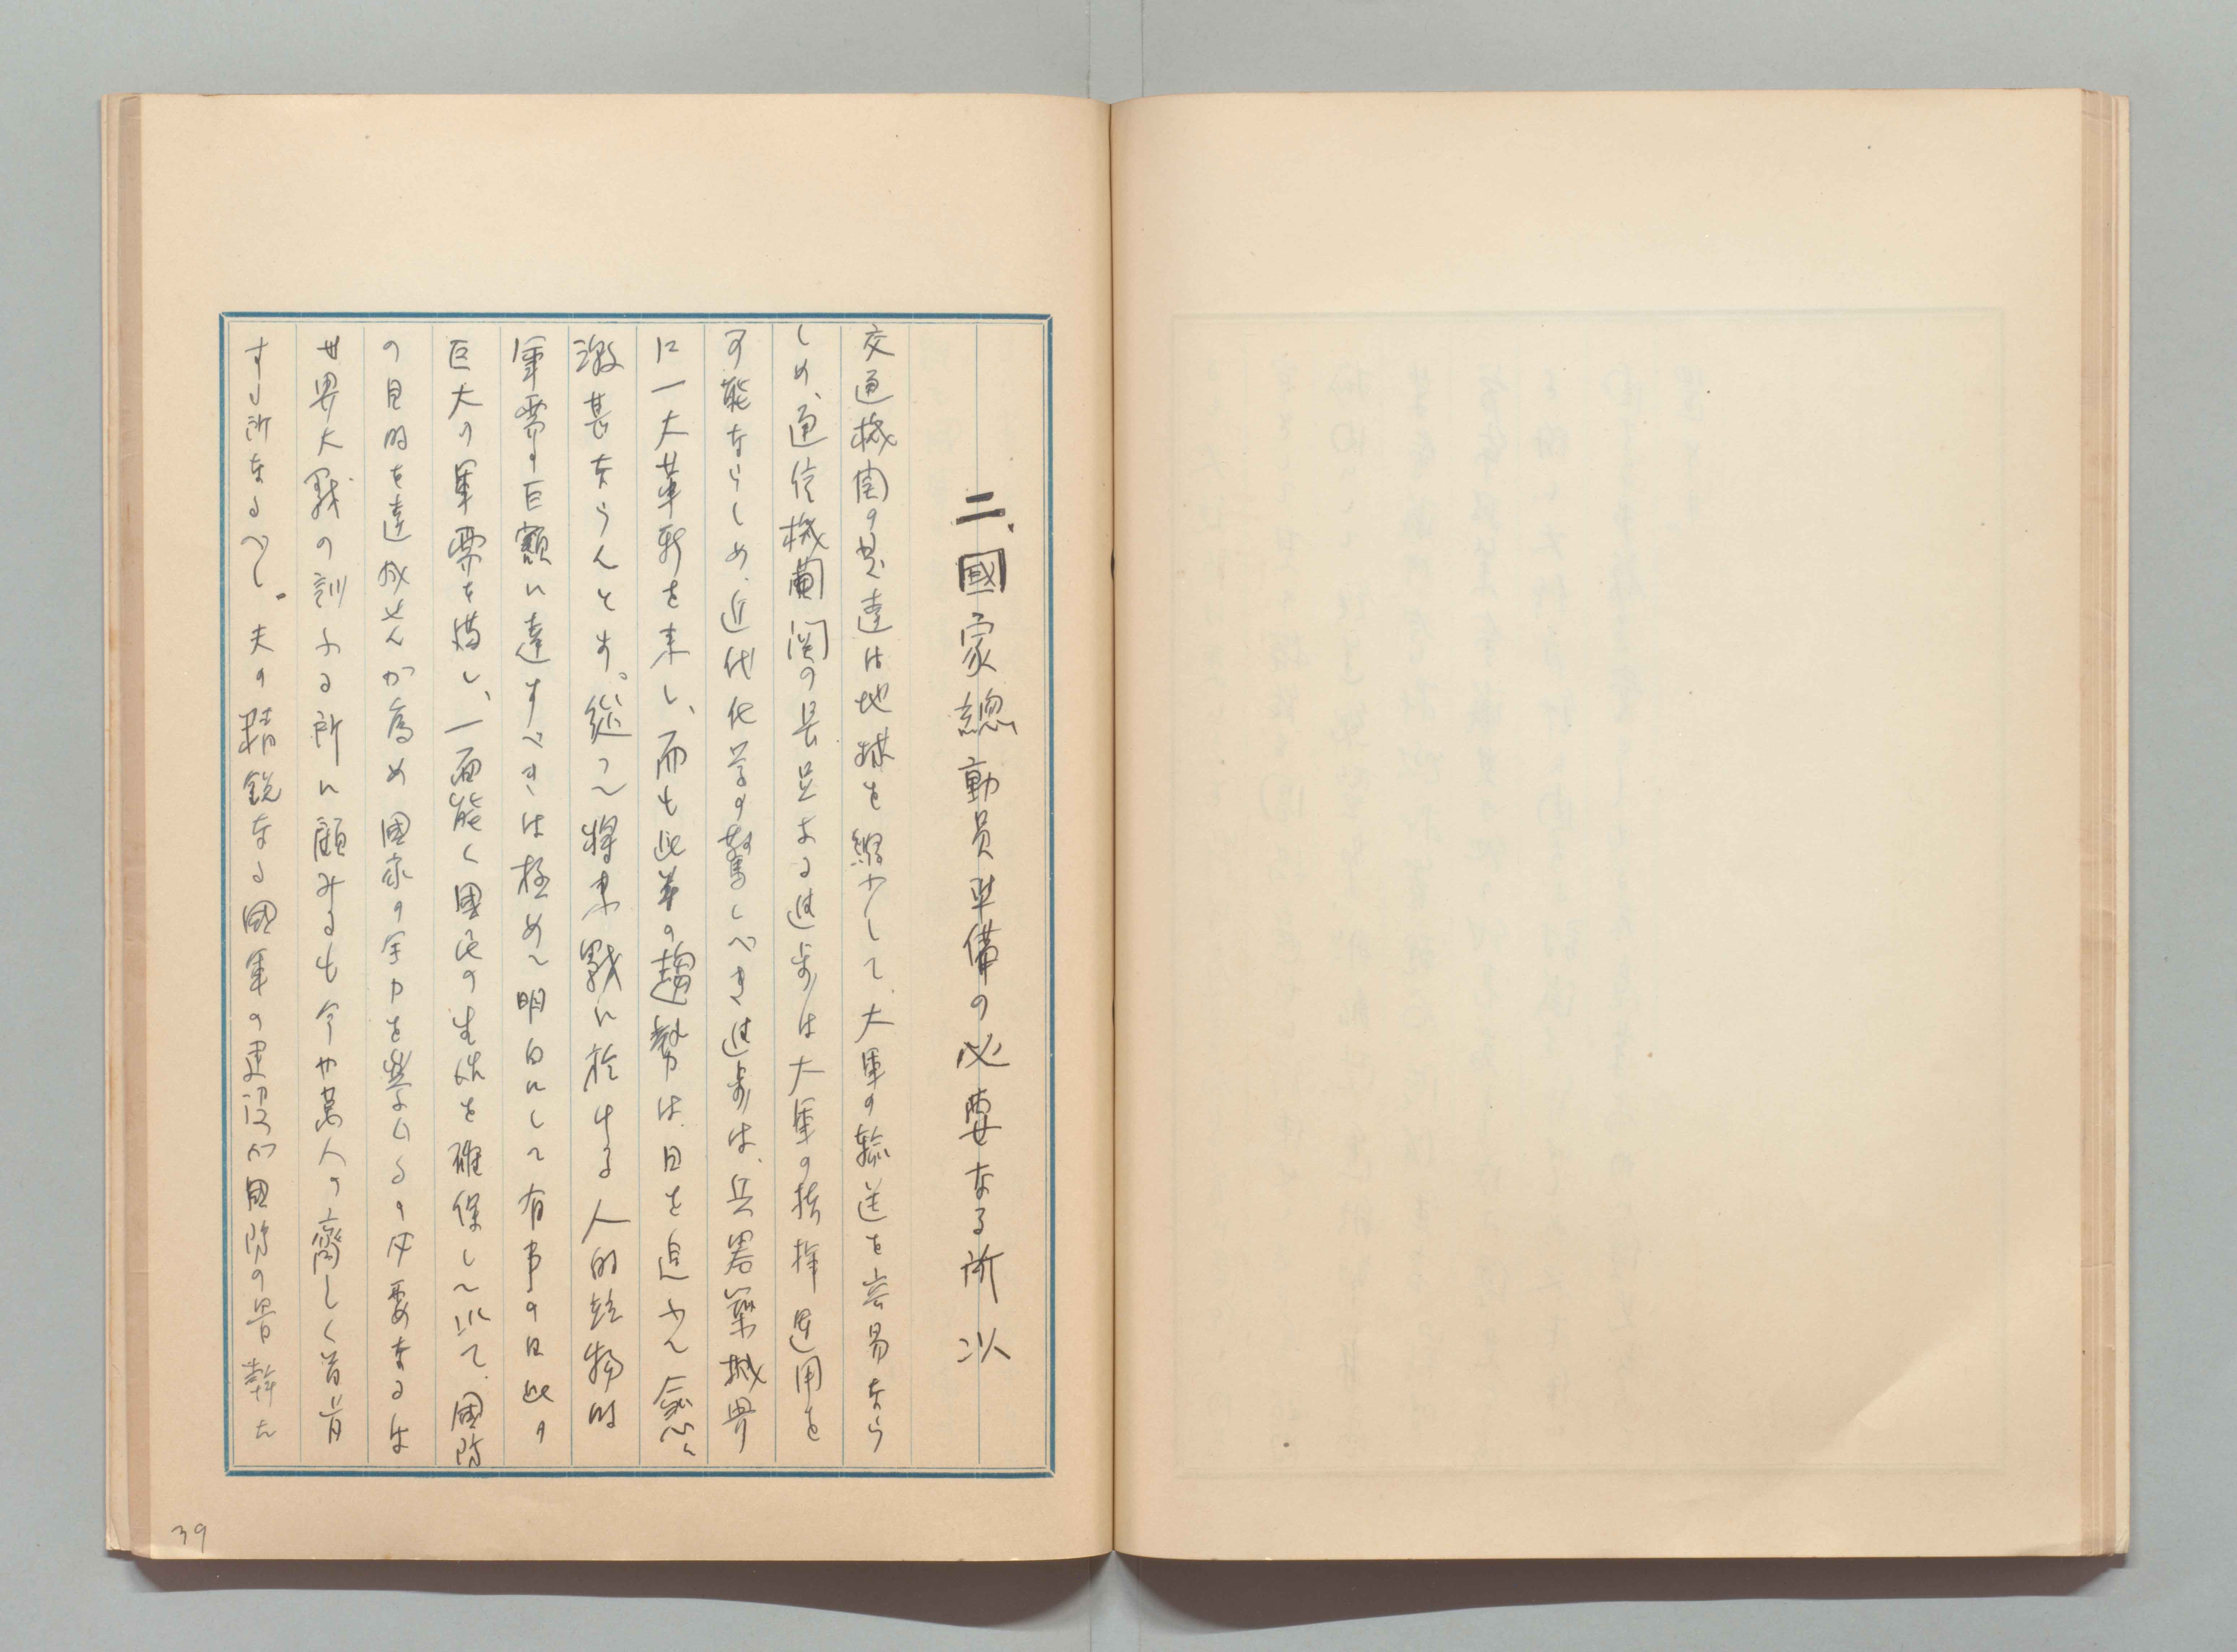 二、國家總動員準備の必要なる所以
交通機関の発達は地球を縮少して、大軍の輸送を容易なら
しめ、通信機関の長足なる進歩は大軍の指揮運用を
可能ならしめ、近代化学の驚くべき進歩は、兵器業械界
に一大革新を来し、而も此等の趨勢は日を追ふて愈々
激甚ならんとす。従って将来戦に於ける人的竝物的
軍需の巨額に達すべきは極めて明白にして有事の日此の
巨大の軍需を満し、一面能く國民の生活を確保して以て、國防
の目的を達成せんか為め國家の全力を挙くるの必要なるは
世界大戦の訓ふる所に顧みるも今や萬人の齊しく首肯
する所なるべし。夫の精鋭なる國軍の建設か國防の骨幹た
39